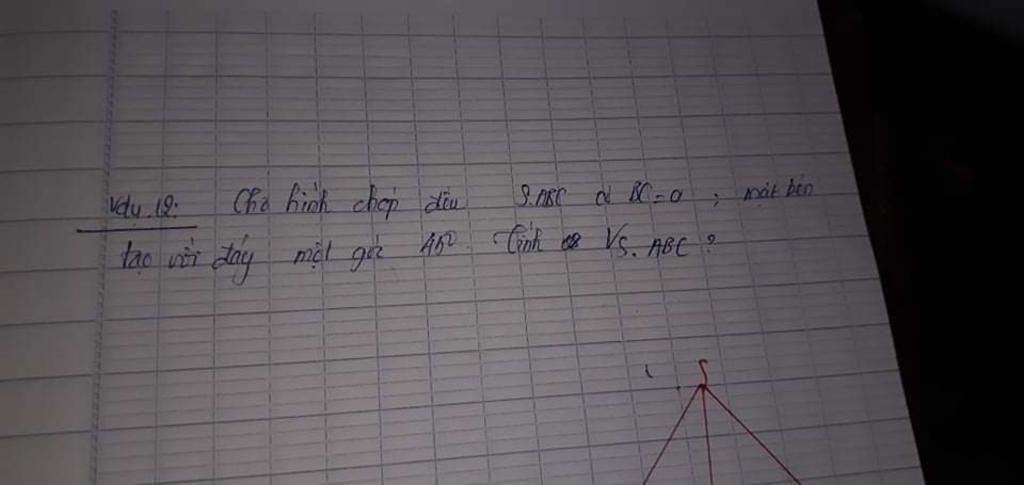 Vdụ 12: Cho hình chóp đều S.ABC có BC = a ; mặt bên
tạo với đáy một góc 45°. Tính VS.ABC ?
S